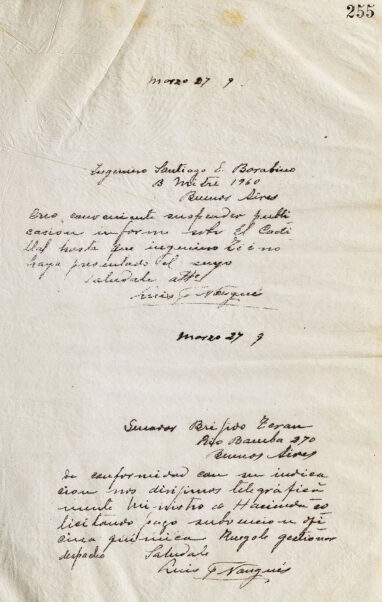 255
Marzo 27 9.
Ingeniero Santiago E. Barabino
B Mitre 1960
Buenos Aires
Creo conveniente suspender publi
casion informe sobre El Cadi
llal hasta que ingeniero
haya presentado el suyo
Saludale atte
Luis F Nougués
Marzo 27 9
Senador Brijido Teran
Rio Bamba 270
Buenos Aires
De conformidad con su indica
cion nos dirijimos telegráfica
mente Ministro de Hacienda so
licitando pago subvencion ofi
cina quimica Ruegole gestionar
despacho Saludale
Luis F Nougués